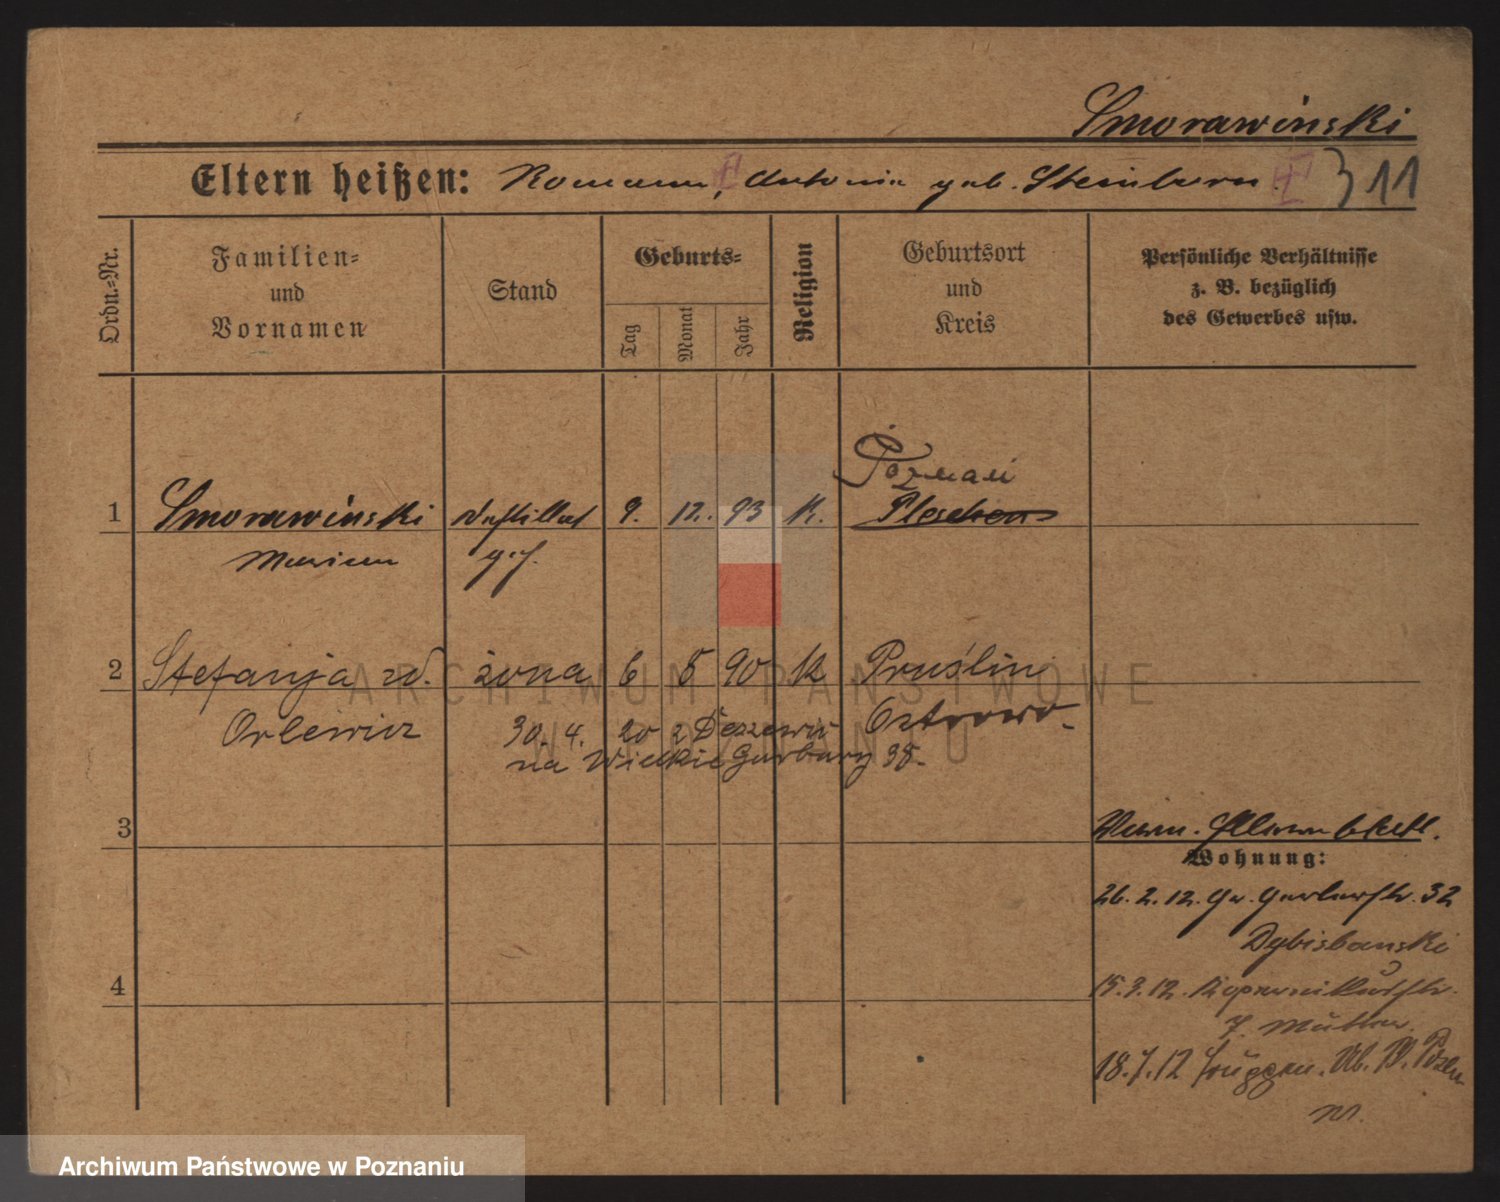 Smorawinski
Eltern heißen: Roman, Antonie geb. Steinborn 311
Ordn.=Nr.
Familien=
und
Vornamen
Stand
Geburts=
Tag
Monat
Jahr
Religion
Geburtsort
und
Kreis
Persönliche Verhältnisse
z. B. bezüglich
des Gewerbes usw.
Poznań
1 Smorawinski 9. 12. 93 K. Pleschen
Marian
2 Stefanja zd. żona 6 5 90 K Pruślin
Orlewicz 30. 4. 20 z Ostrowo
na Wielkie Garbary 38.
3
Wohnung:
26. 2. 12. Gr. Gerberstr. 32
4
15. 3. 12. Kopernikusstr.
7 Müller
18. 7. 12
ARCHIWUM PAŃSTWOWE
W POZNANIU
Archiwum Państwowe w Poznaniu